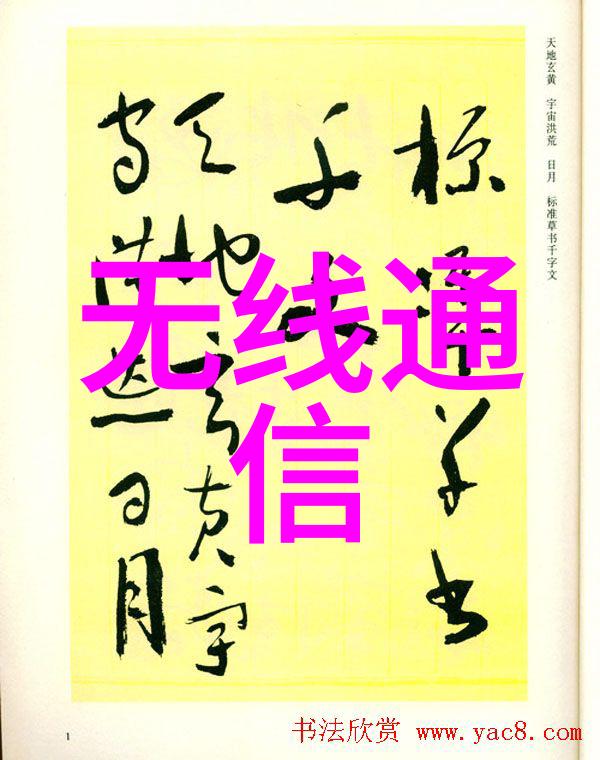 天地玄黄 宇宙洪荒 日月 标准草书千字文
标准草书
千文
天地玄黄宇
宙洪荒日月
无线通
信
1
书法欣赏 www.yac8.com